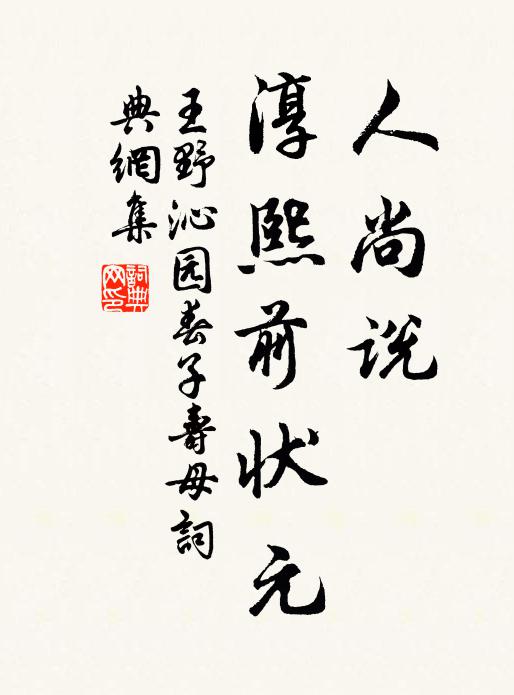 人尚说
淳熙前状元
王野沁园春子寿母词
典網集
詞典網印